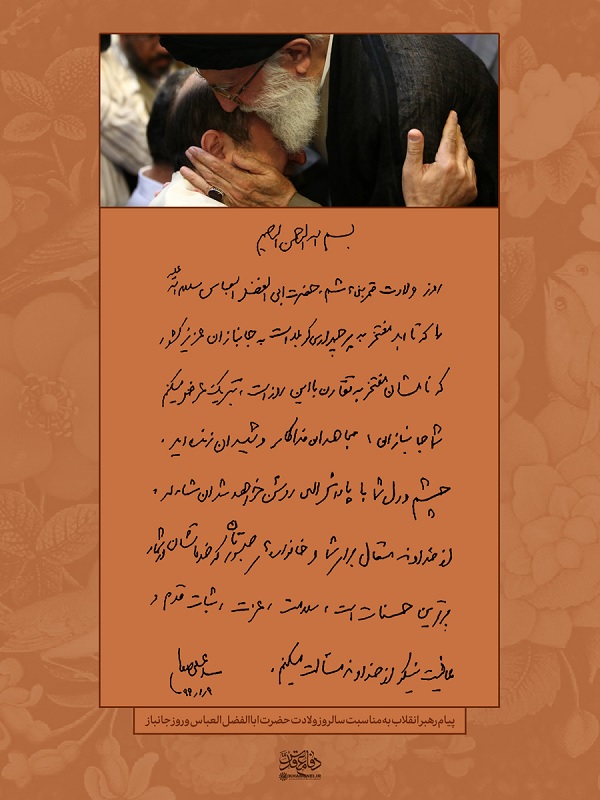 بسم الله الرحمن الرحیم
روز ولادت قمر بنی‌هاشم، حضرت ابی الفضل العباس سلام‌الله علیه
را که تا ابد مفتخر به پرچمداری کربلا است به جانبازان عزیز کشور
که نامشان مفتخر به تقارن با این روز است، تبریک عرض میکنم
شما جانبازان، مجاهدان فداکار و شهیدان زنده اید.
چشم و دل شما با پاداش الهی روشن خواهد شد ان شاءالله.
از خداوند متعال برای شما و خانواده‌ی صبورتان که خدماتشان در شمار
برترین حسنات است، سلامت، عزت، ثبات قدم و
عاقبت نیکو از خداوند مسألت میکنم.
سیدعلی خامنه‌ای
۹۹/۱/۹
پیام رهبر انقلاب به مناسبت سالروز ولادت حضرت اباالفضل العباس و روز جانباز
KHAMENEI.IR